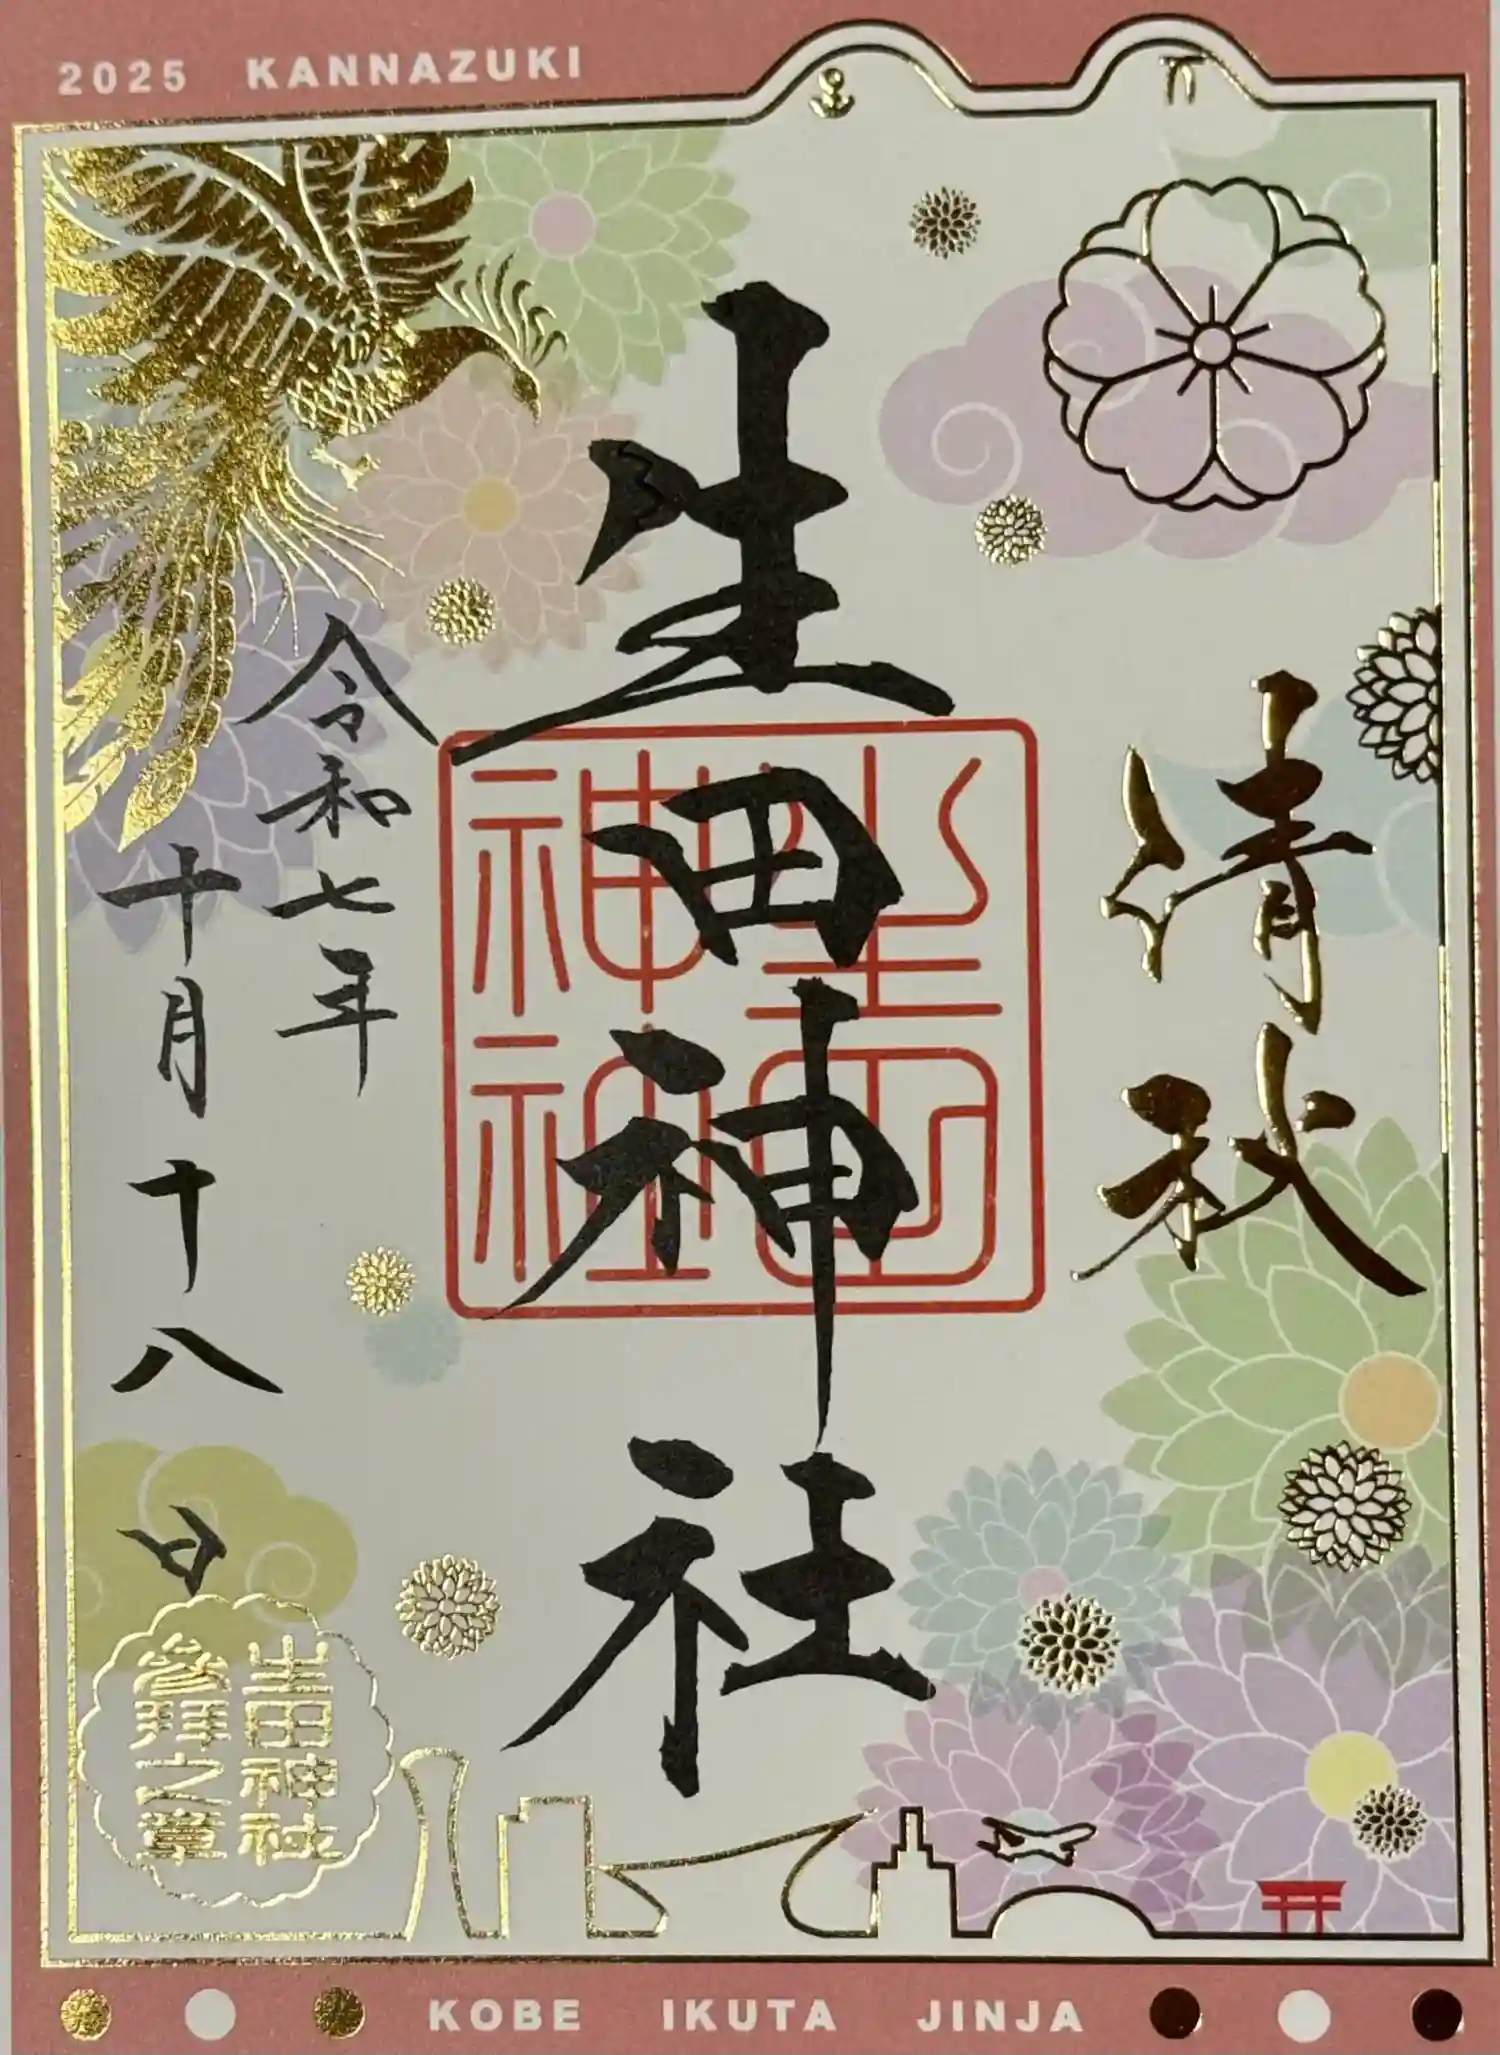 2025 KANNAZUKI
清秋
生田神社
生田神社
令和七年
十月十八日
生田神社
参拝之章
KOBE IKUTA JINJA